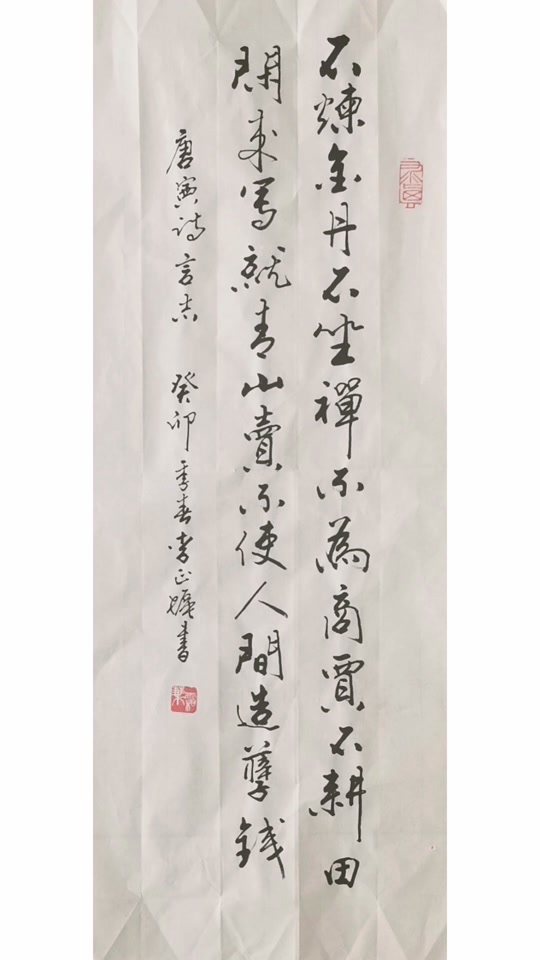 不煉金丹不坐禪不為商賈不耕田
閑來写就青山賣不使人間造孽錢
唐寅诗言志 癸卯季春李正
書